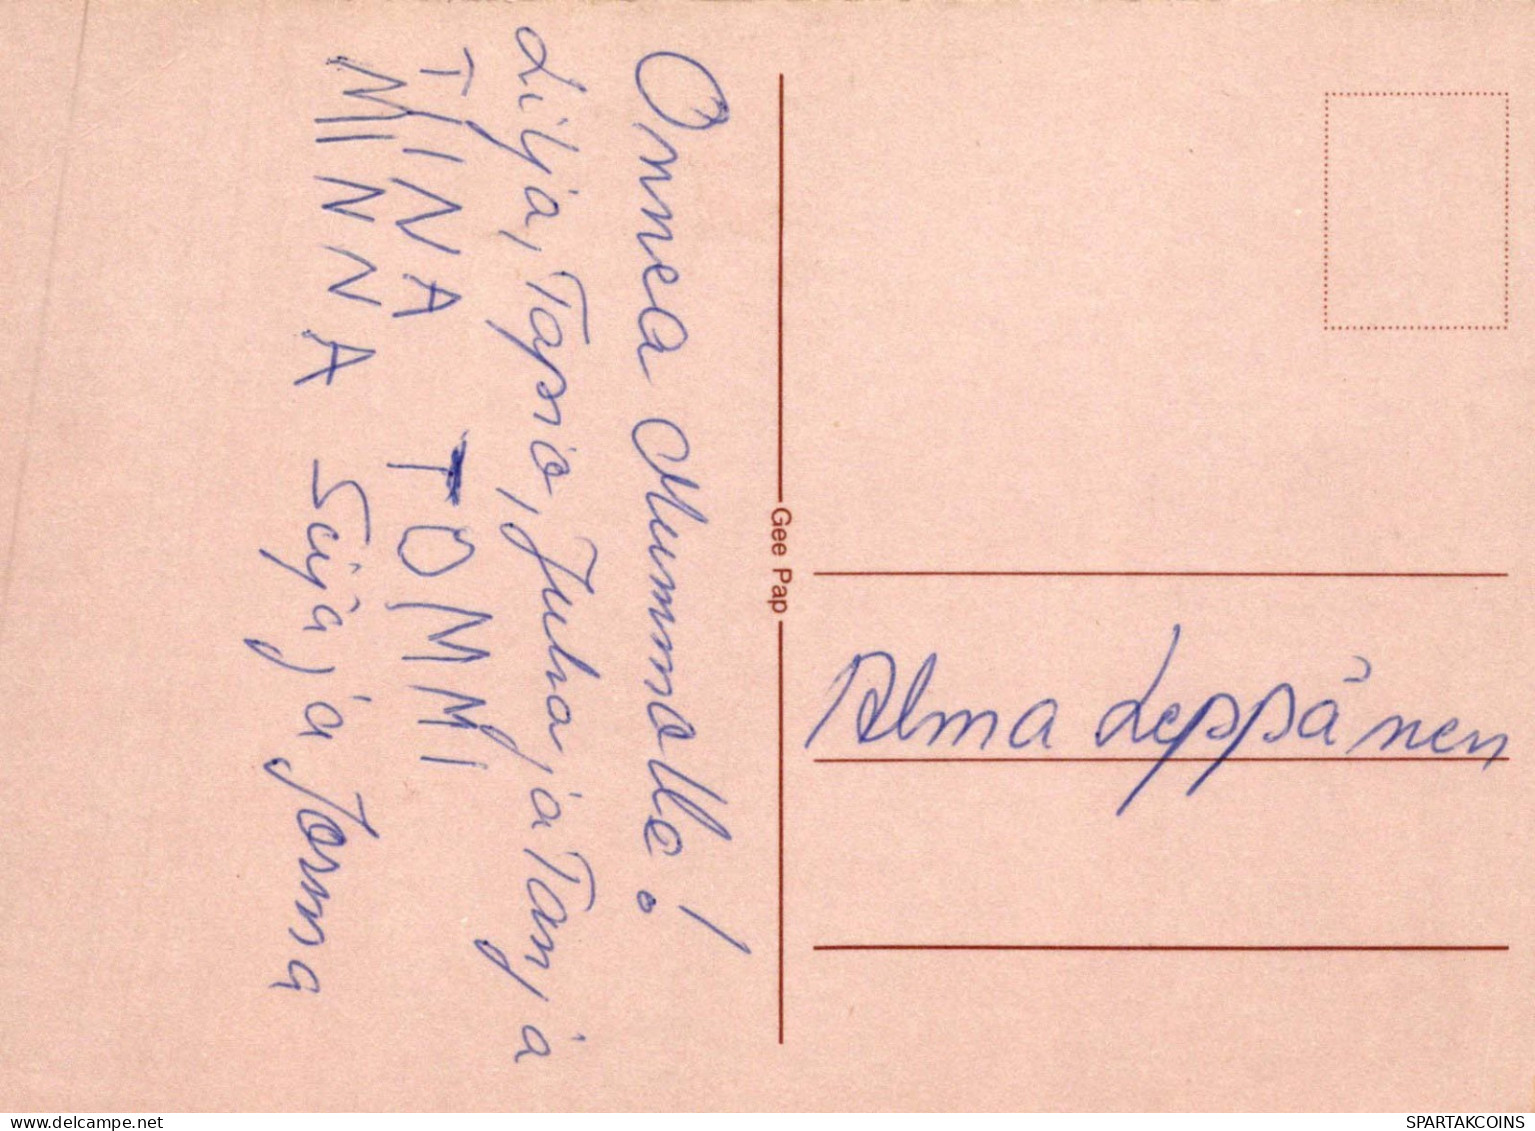 Onnea Mummolle!
Lilja, Tapsio, Juha, ja Tanja
TIINA TOMMI
MINNA Seija ja Jorma
Gee Pap
Alma Leppänen
delcampe.net
SPARTAKCOINS